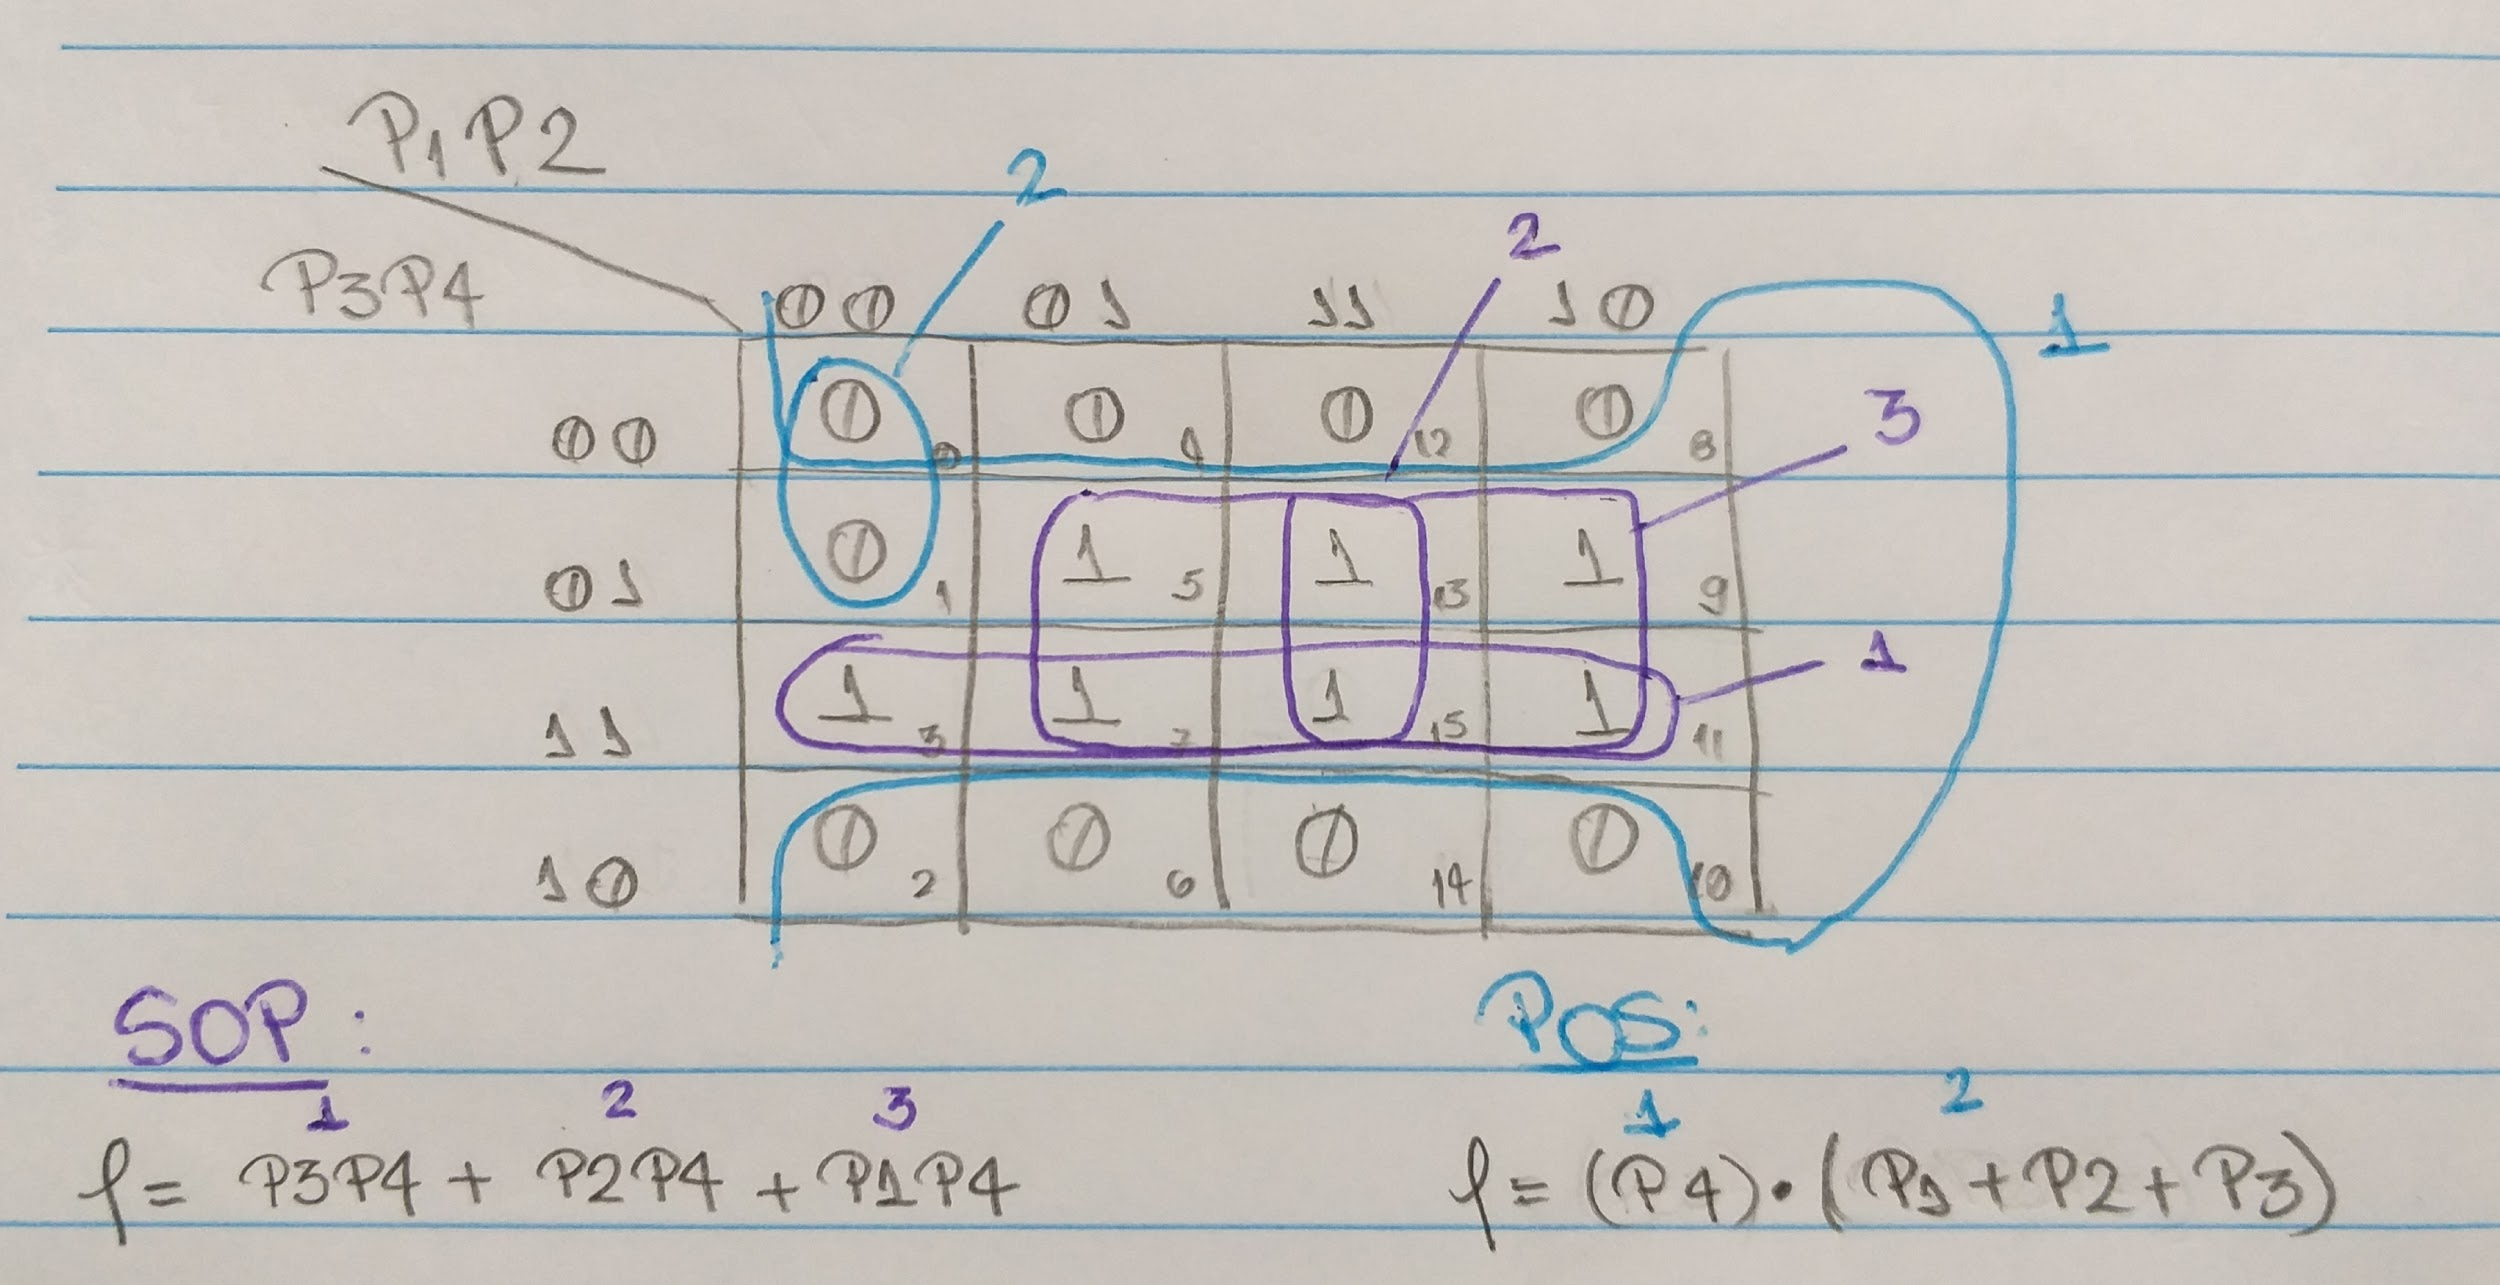 P1P2
2
2
P3P4
00 01 11 10
1
3
00 0 0 0 4 0 12 0 8
01 0 1 1 5 1 13 1 9
1
11 1 3 1 7 1 15 1 11
10 0 2 0 6 0 14 0 10
SOP: POS:
1 2 3 1 2
f= P3P4 + P2P4 + P1P4 f= (P4)·(P1+P2+P3)